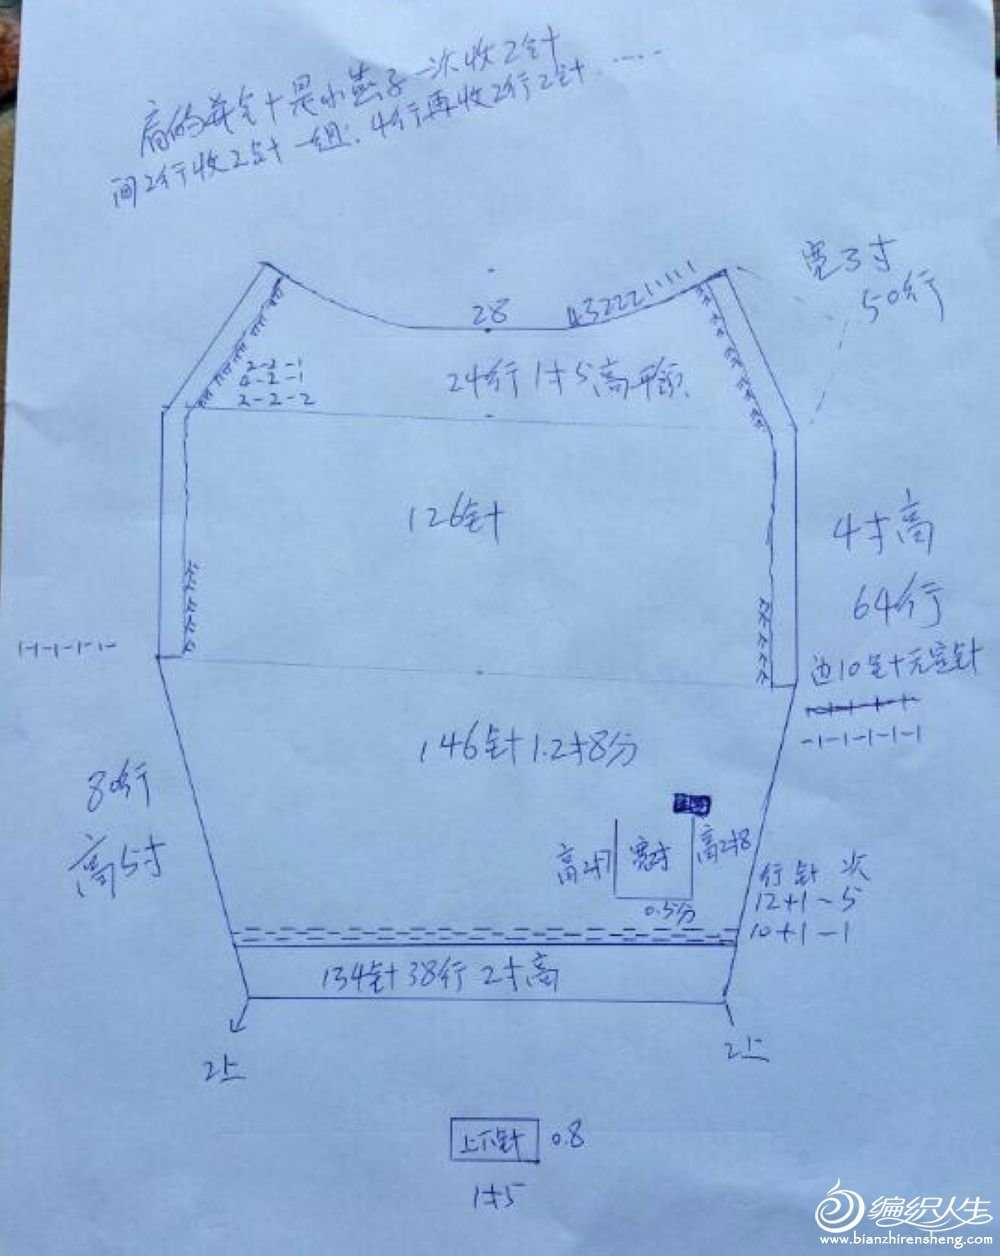 肩的并针是小燕子一次收2针
间2行收2针一组. 4行再收2行2针......
宽3寸
50行
28
432221111
2-2-1
4-2-1
2-2-2
24行1寸5高
126针
4寸高
64行
边10针
1-1-1-1-1-
-1-1-1-1-1-1
146针1.2寸8分
80行
高5寸
高2寸7
宽寸
高2寸8
0.5分
行针 次
12+1-5
10+1-1
134针38行2寸高
2上
2上
上下针
0.8
1寸5
编织人生
www.bianzhirensheng.com